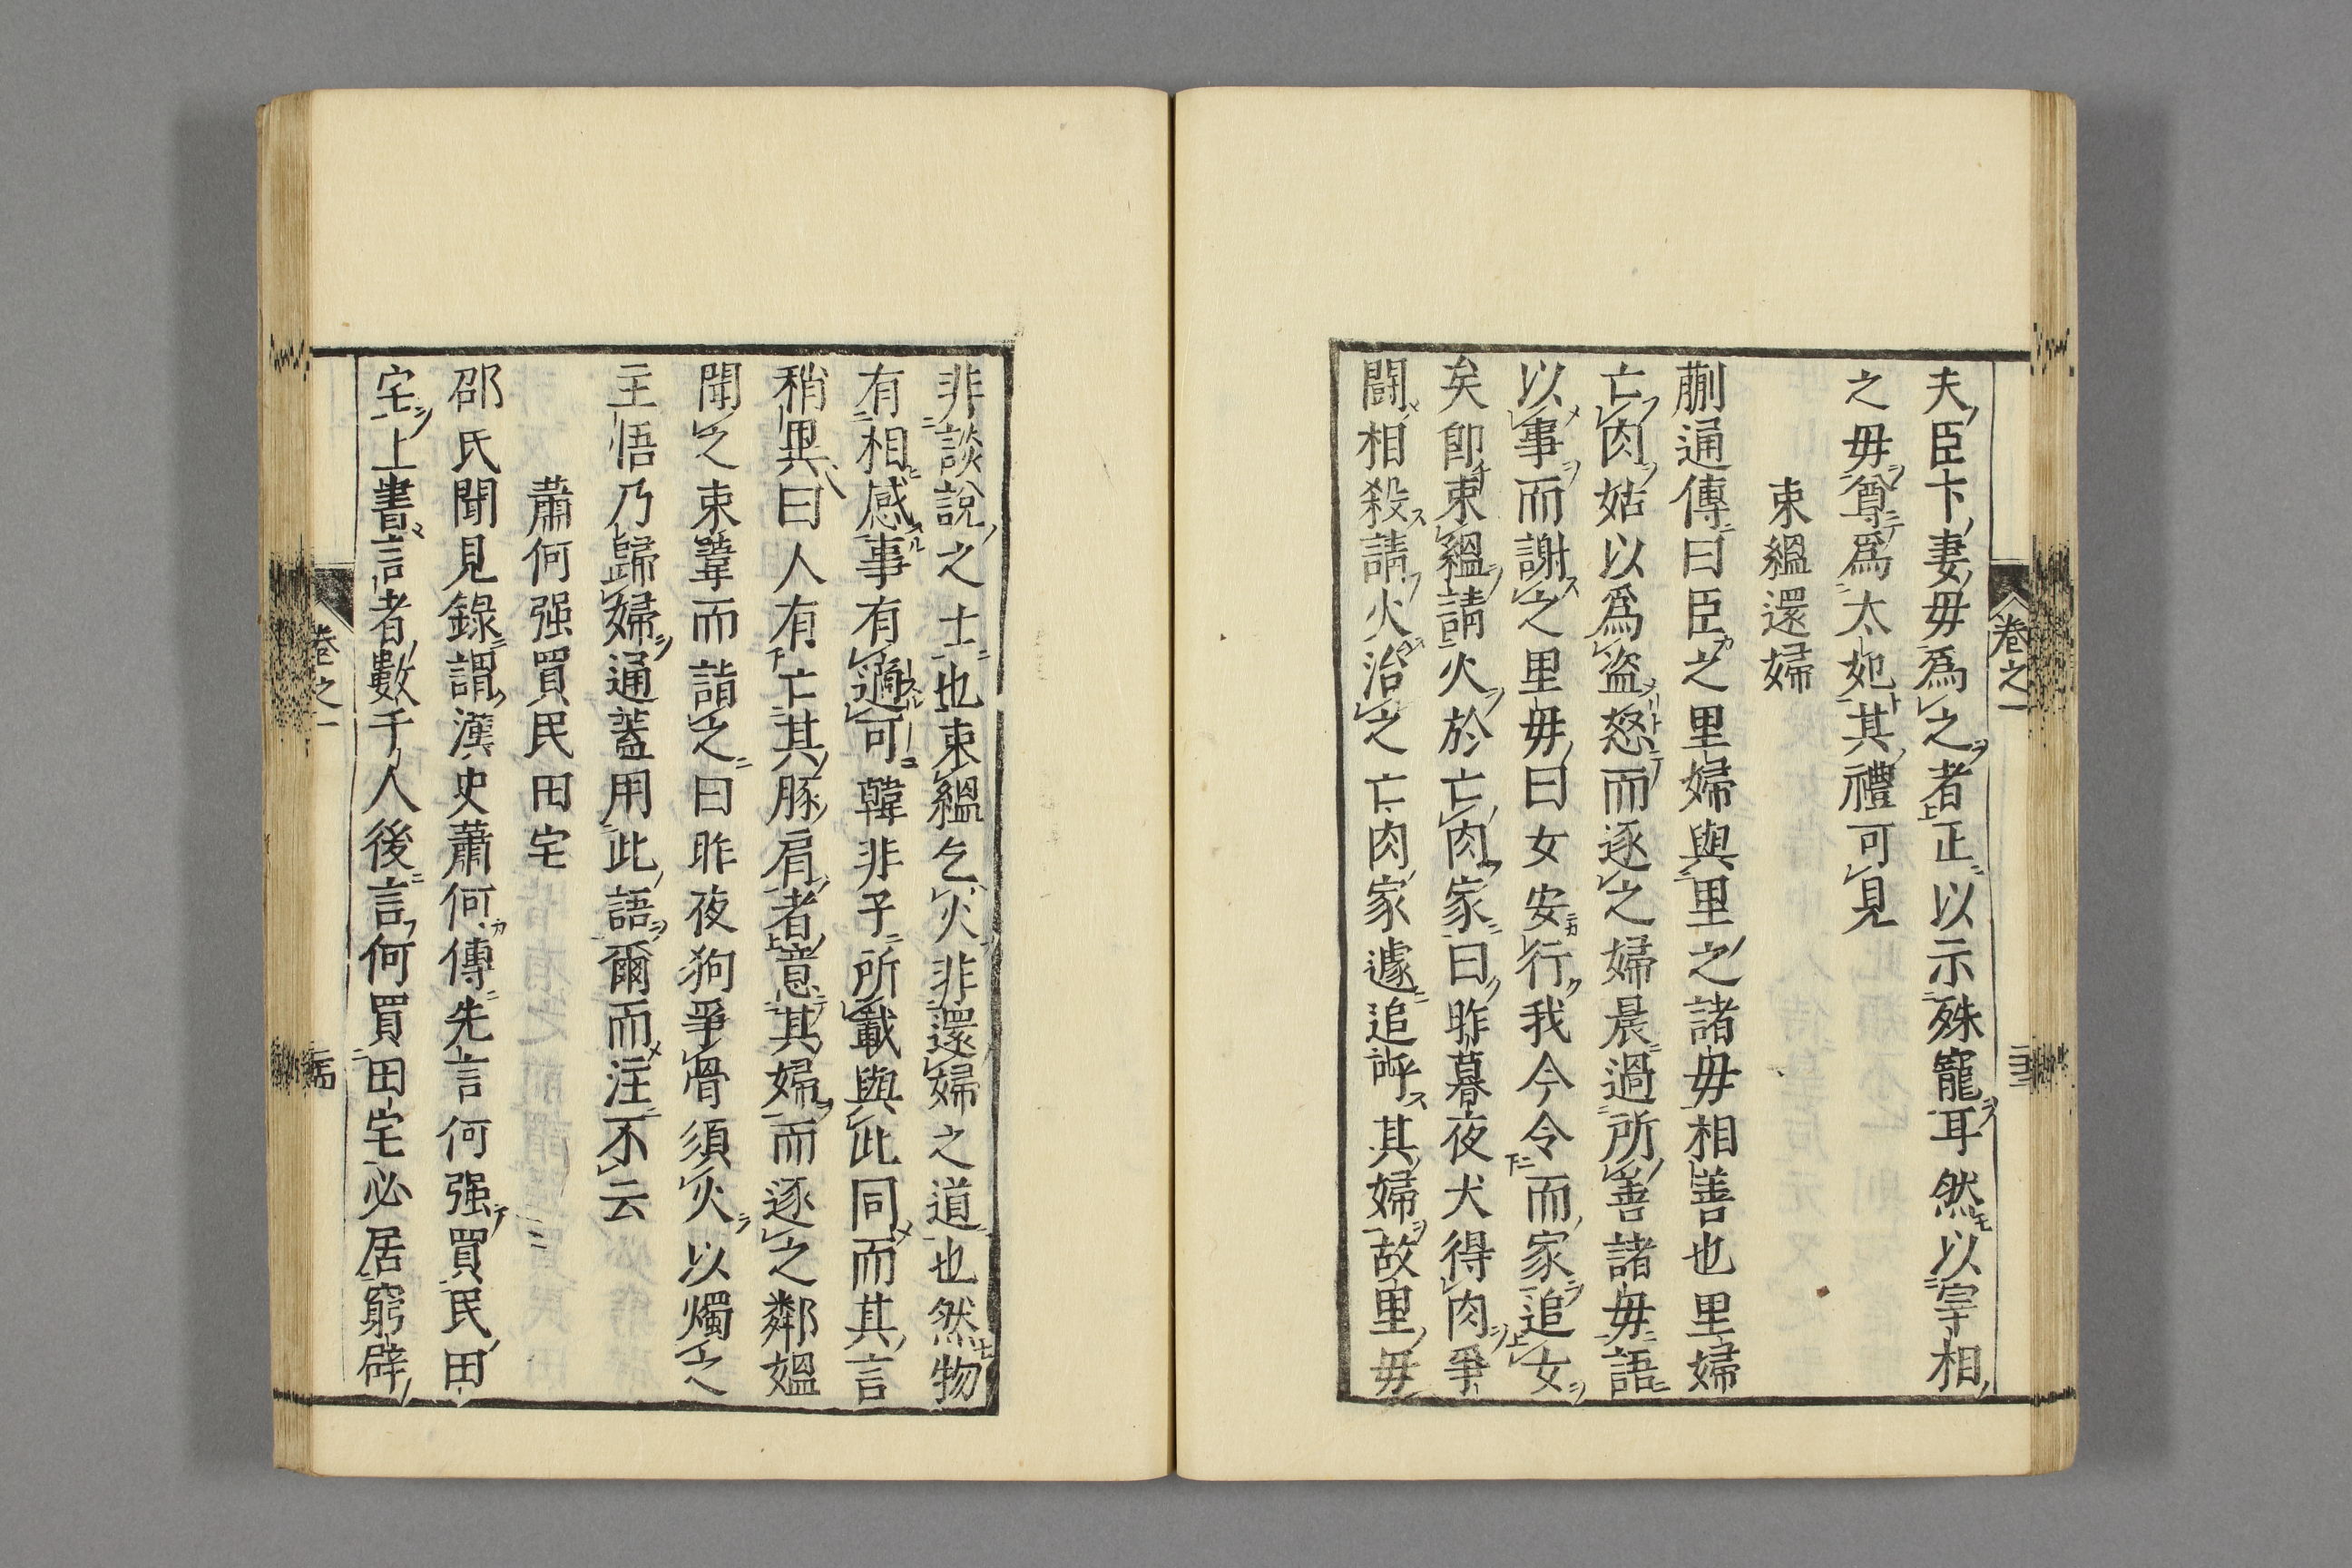 夫臣卞妻毋爲之者正以示殊寵耳然以宰相
之毋尊爲太妃其禮可見
束縕還婦
蒯通傳曰臣之里婦與里之諸毋相善也里婦
亡肉姑以爲盗怒而逐之婦晨過所善諸毋語
以事而謝之里毋曰女安行我今令而家追女
矣卽束縕請火於亡肉家曰昨暮夜犬得肉爭
鬪相殺請火治之亡肉家遽追呼其婦故里毋
非談說之士也束縕乞火非還婦之道也然物
有相感事有適可韓非子所載與此同而其言
稍異曰人有亡其豚肩者意其婦而逐之鄰媼
聞之束藴而詣之曰昨夜狗爭骨須火以燭之
主悟乃歸婦通蓋用此語爾而注不云
蕭何强買民田宅
邵氏聞見錄謂漢史蕭何傳先言何强買民田
宅上書言者數千人後言何買田宅必居窮辟
卷之一
卷之一